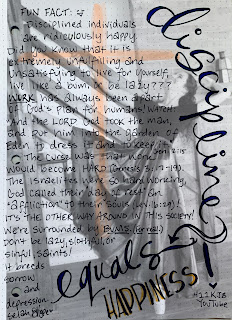 FUN FACT:
Disciplined individuals
are ridiculously happy.
Did you know that it is
extremely unfulfilling and
unsatisfying to live for yourself,
live like a bum, or be lazy???
WORK has always been a part
of God's plan for humans! WHAT!
And the LORD God took the man,
and put him into the garden of
Eden to dress it and to keep it.
Gen 2:15
The curse was that work
would become HARD (Genesis 3:17-19).
The Israelites were so hard working,
God called their day of rest an
"affliction" to their souls
IT'S THE OTHER WAY AROUND IN THIS SOCIETY!
We're surrounded by BUMS
Don't be lazy, slothful, or
sinful, saints!
It breeds
sorrow
and
depression.
discipline
equals
HAPPINESS!
411KJB
YouTube